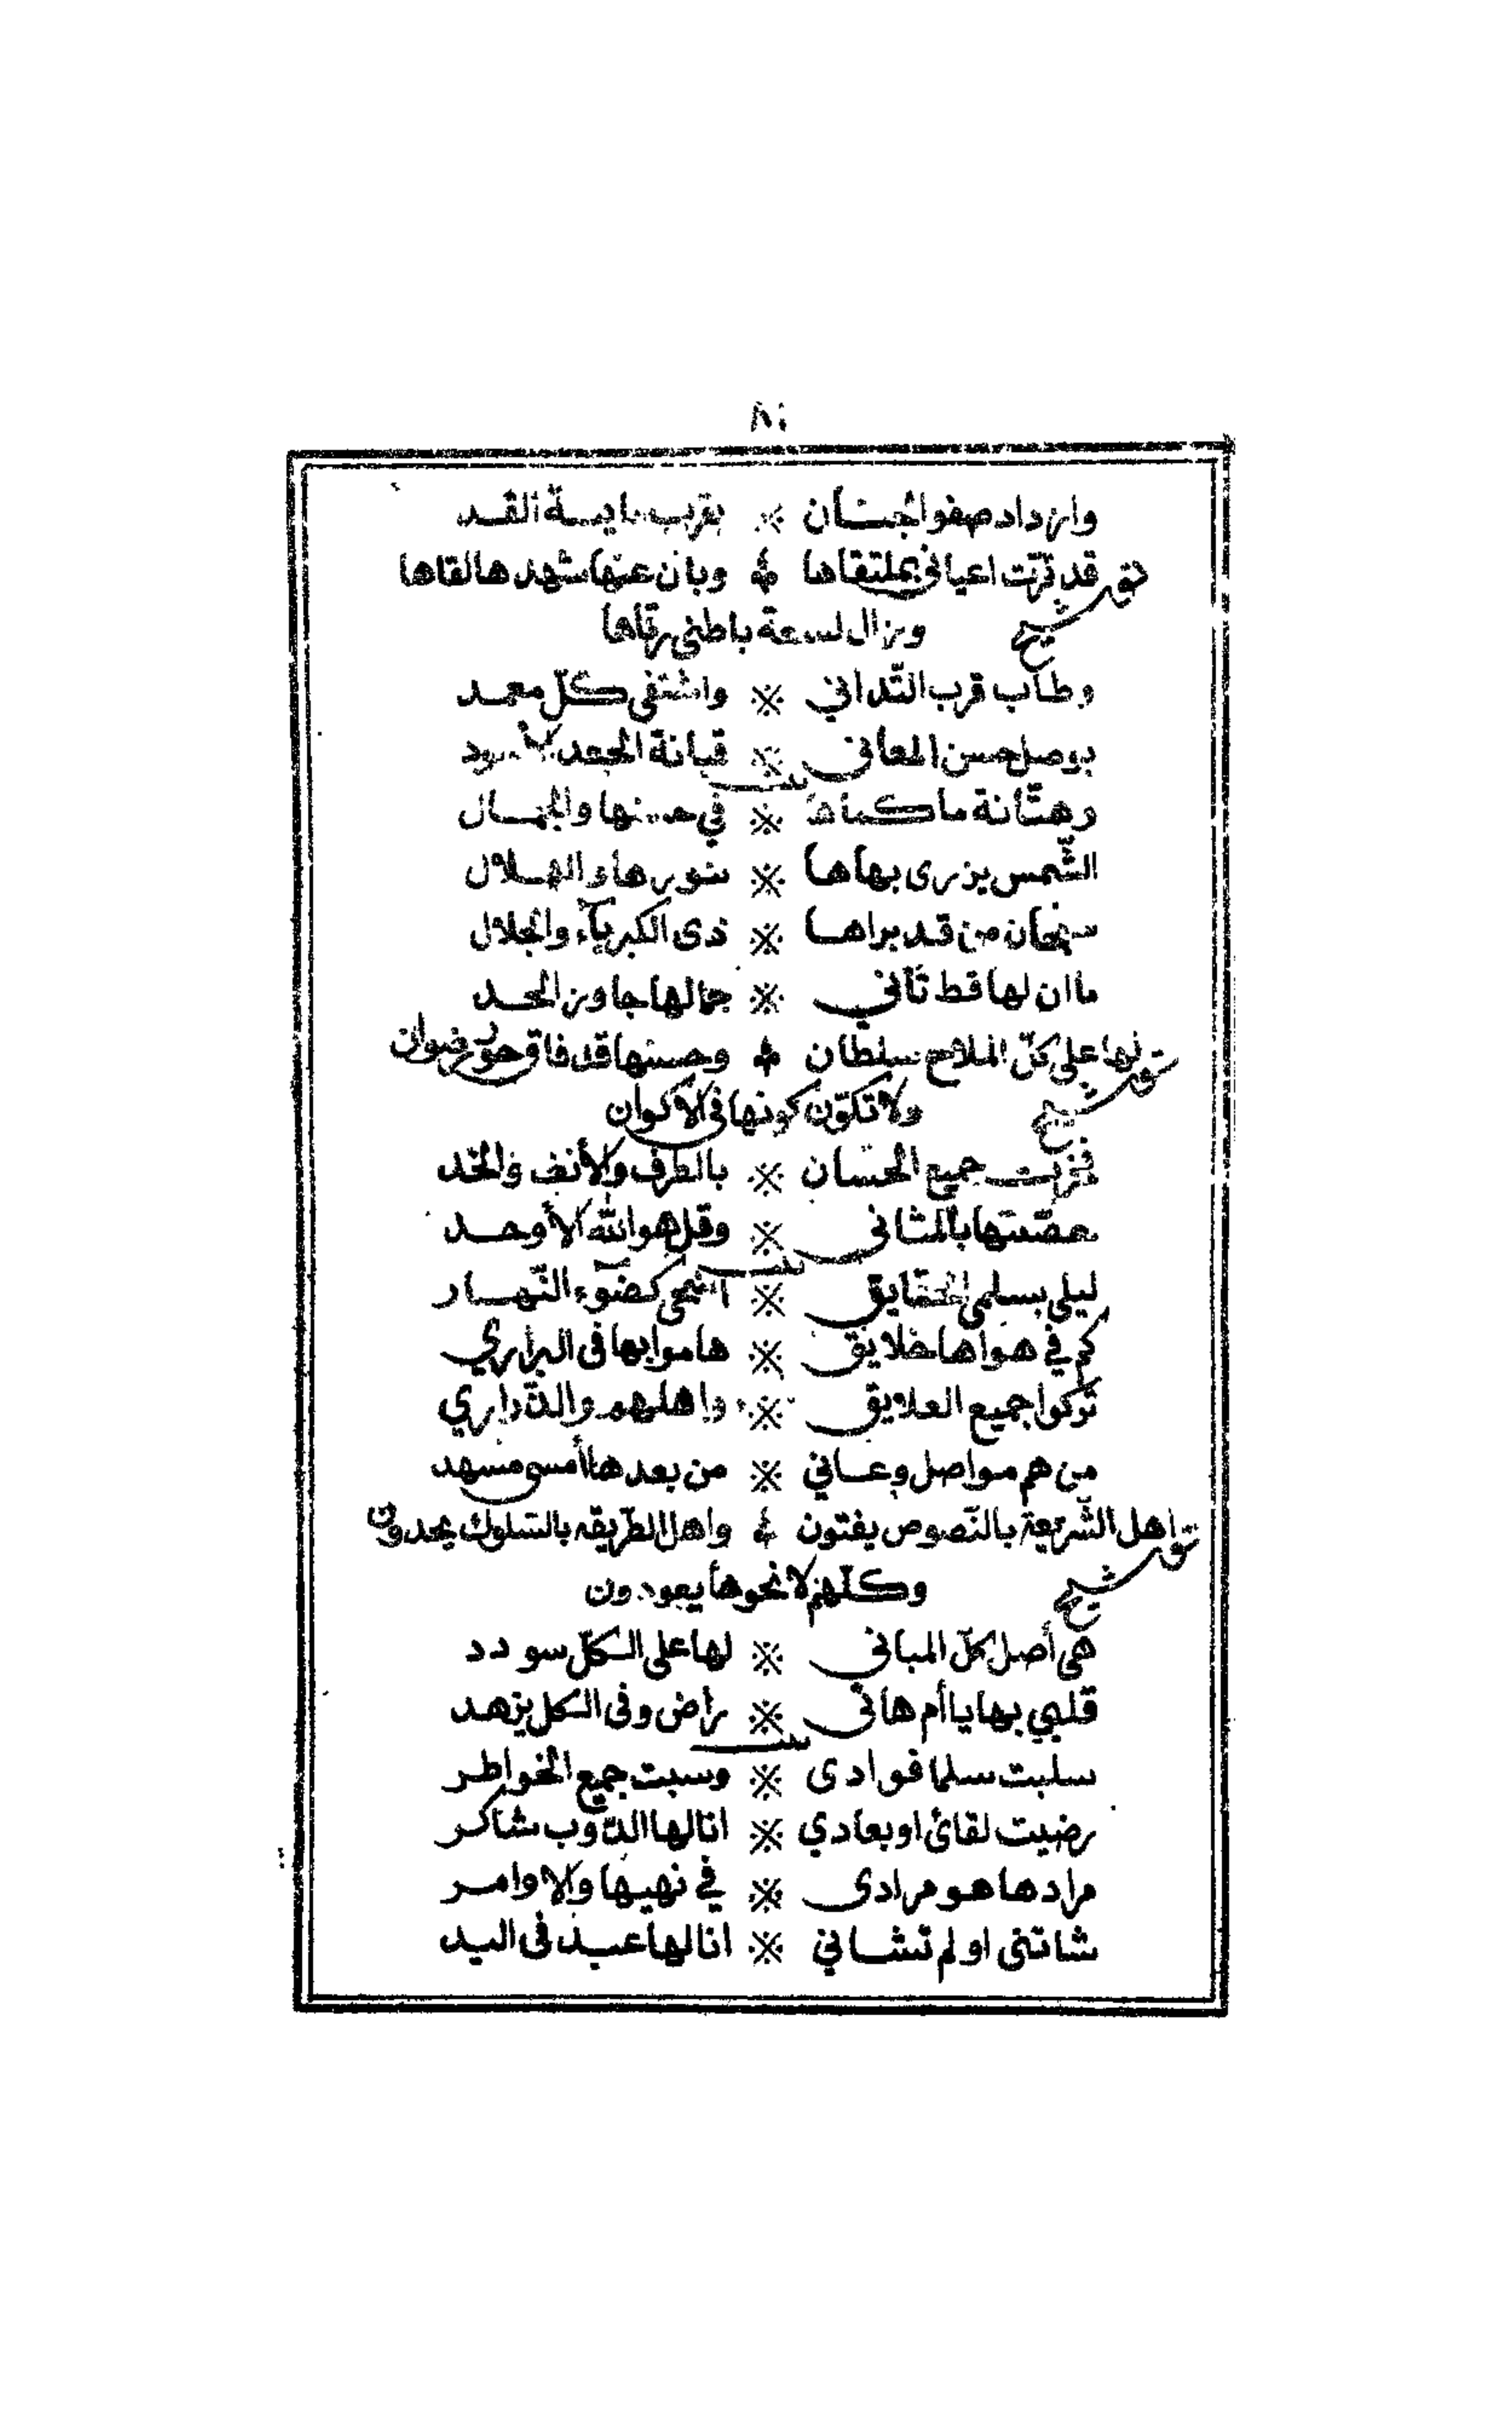 وازداد صفو الجنان ※ بقرب مايسة القد
توشيح قد قرّت اعياني بملتقاها ※ وبان عنها شهدها لقاها
وزال لسعة باطني رقاها
وطاب قرب التّداني ※ واشتفى كلّ معمد
بوصل حسن المعاني ※ فتانة الجعد الأسود
بيت
رهتّانة ما كماها ※ في حسنها والجمال
الشّمس يزرى بهاها ※ بنورها والهلال
سبحان من قد براها ※ ذى الكبرياء والجلال
ما ان لها قط ثاني ※ جمالها جاوز الحد
توشيح لها على كلّ الملاح سلطان ※ وحسنها قد فاق حور رضوان
ولا تكوّن كونها في الاكوان
فخرت جميع الحسان ※ بالطرف والأنف والخد
حصّنتها بالمثاني ※ وقل هو الله الأوحد
بيت
ليلى بسلمى الحقايق ※ اضحى كضوء النّهار
كم في هواها خلايق ※ هاموا بها في البراري
تركوا جميع العلايق ※ واهلهم والذّراري
من هم مواصل وعاني ※ من بعدها أمسى مسهد
توشيح اهل الشّريعة بالنّصوص يفتون ※ واهل الطّريقه بالسّلوك يحدون
وكلّهم لا نحوها يعودون
هي أصل كلّ المباني ※ لها على الكلّ سودد
قلبي بها يا أم هاني ※ راض وفي الكل يزهد
بيت
سلبت سلما فوادى ※ وسبت جميع الخواطر
رضيت لقائ او بعادي ※ انا لها الدّوب شاكر
مرادها هو مرادى ※ في نهيها والاوامر
شاتني او لم تشاني ※ انا لها عبد في اليد